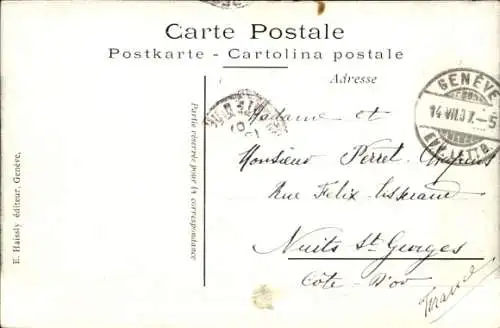 Carte Postale
Postkarte - Cartolina postale
Adresse
GENÈVE
14.VII.07.-5
EXP. LETTR.
Madame et
Monsieur Perret
Rue Felix
Nuits St Georges
Côte-d'or
France
Partie réservée pour la correspondance
E. Haissly éditeur, Genève.